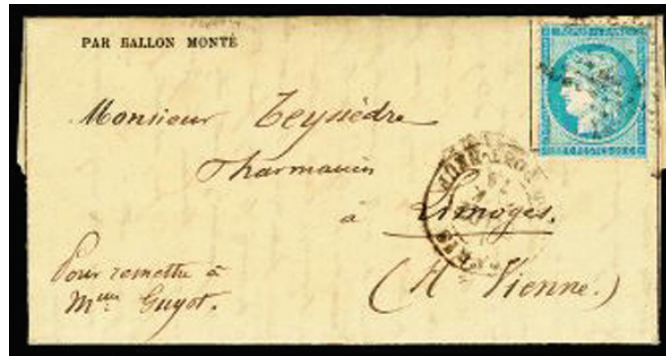 PAR BALLON MONTÉ
Monsieur Teyssèdre
Pharmacien
à Limoges.
(Hte Vienne.)
Pour remettre à
Mme Guyot.